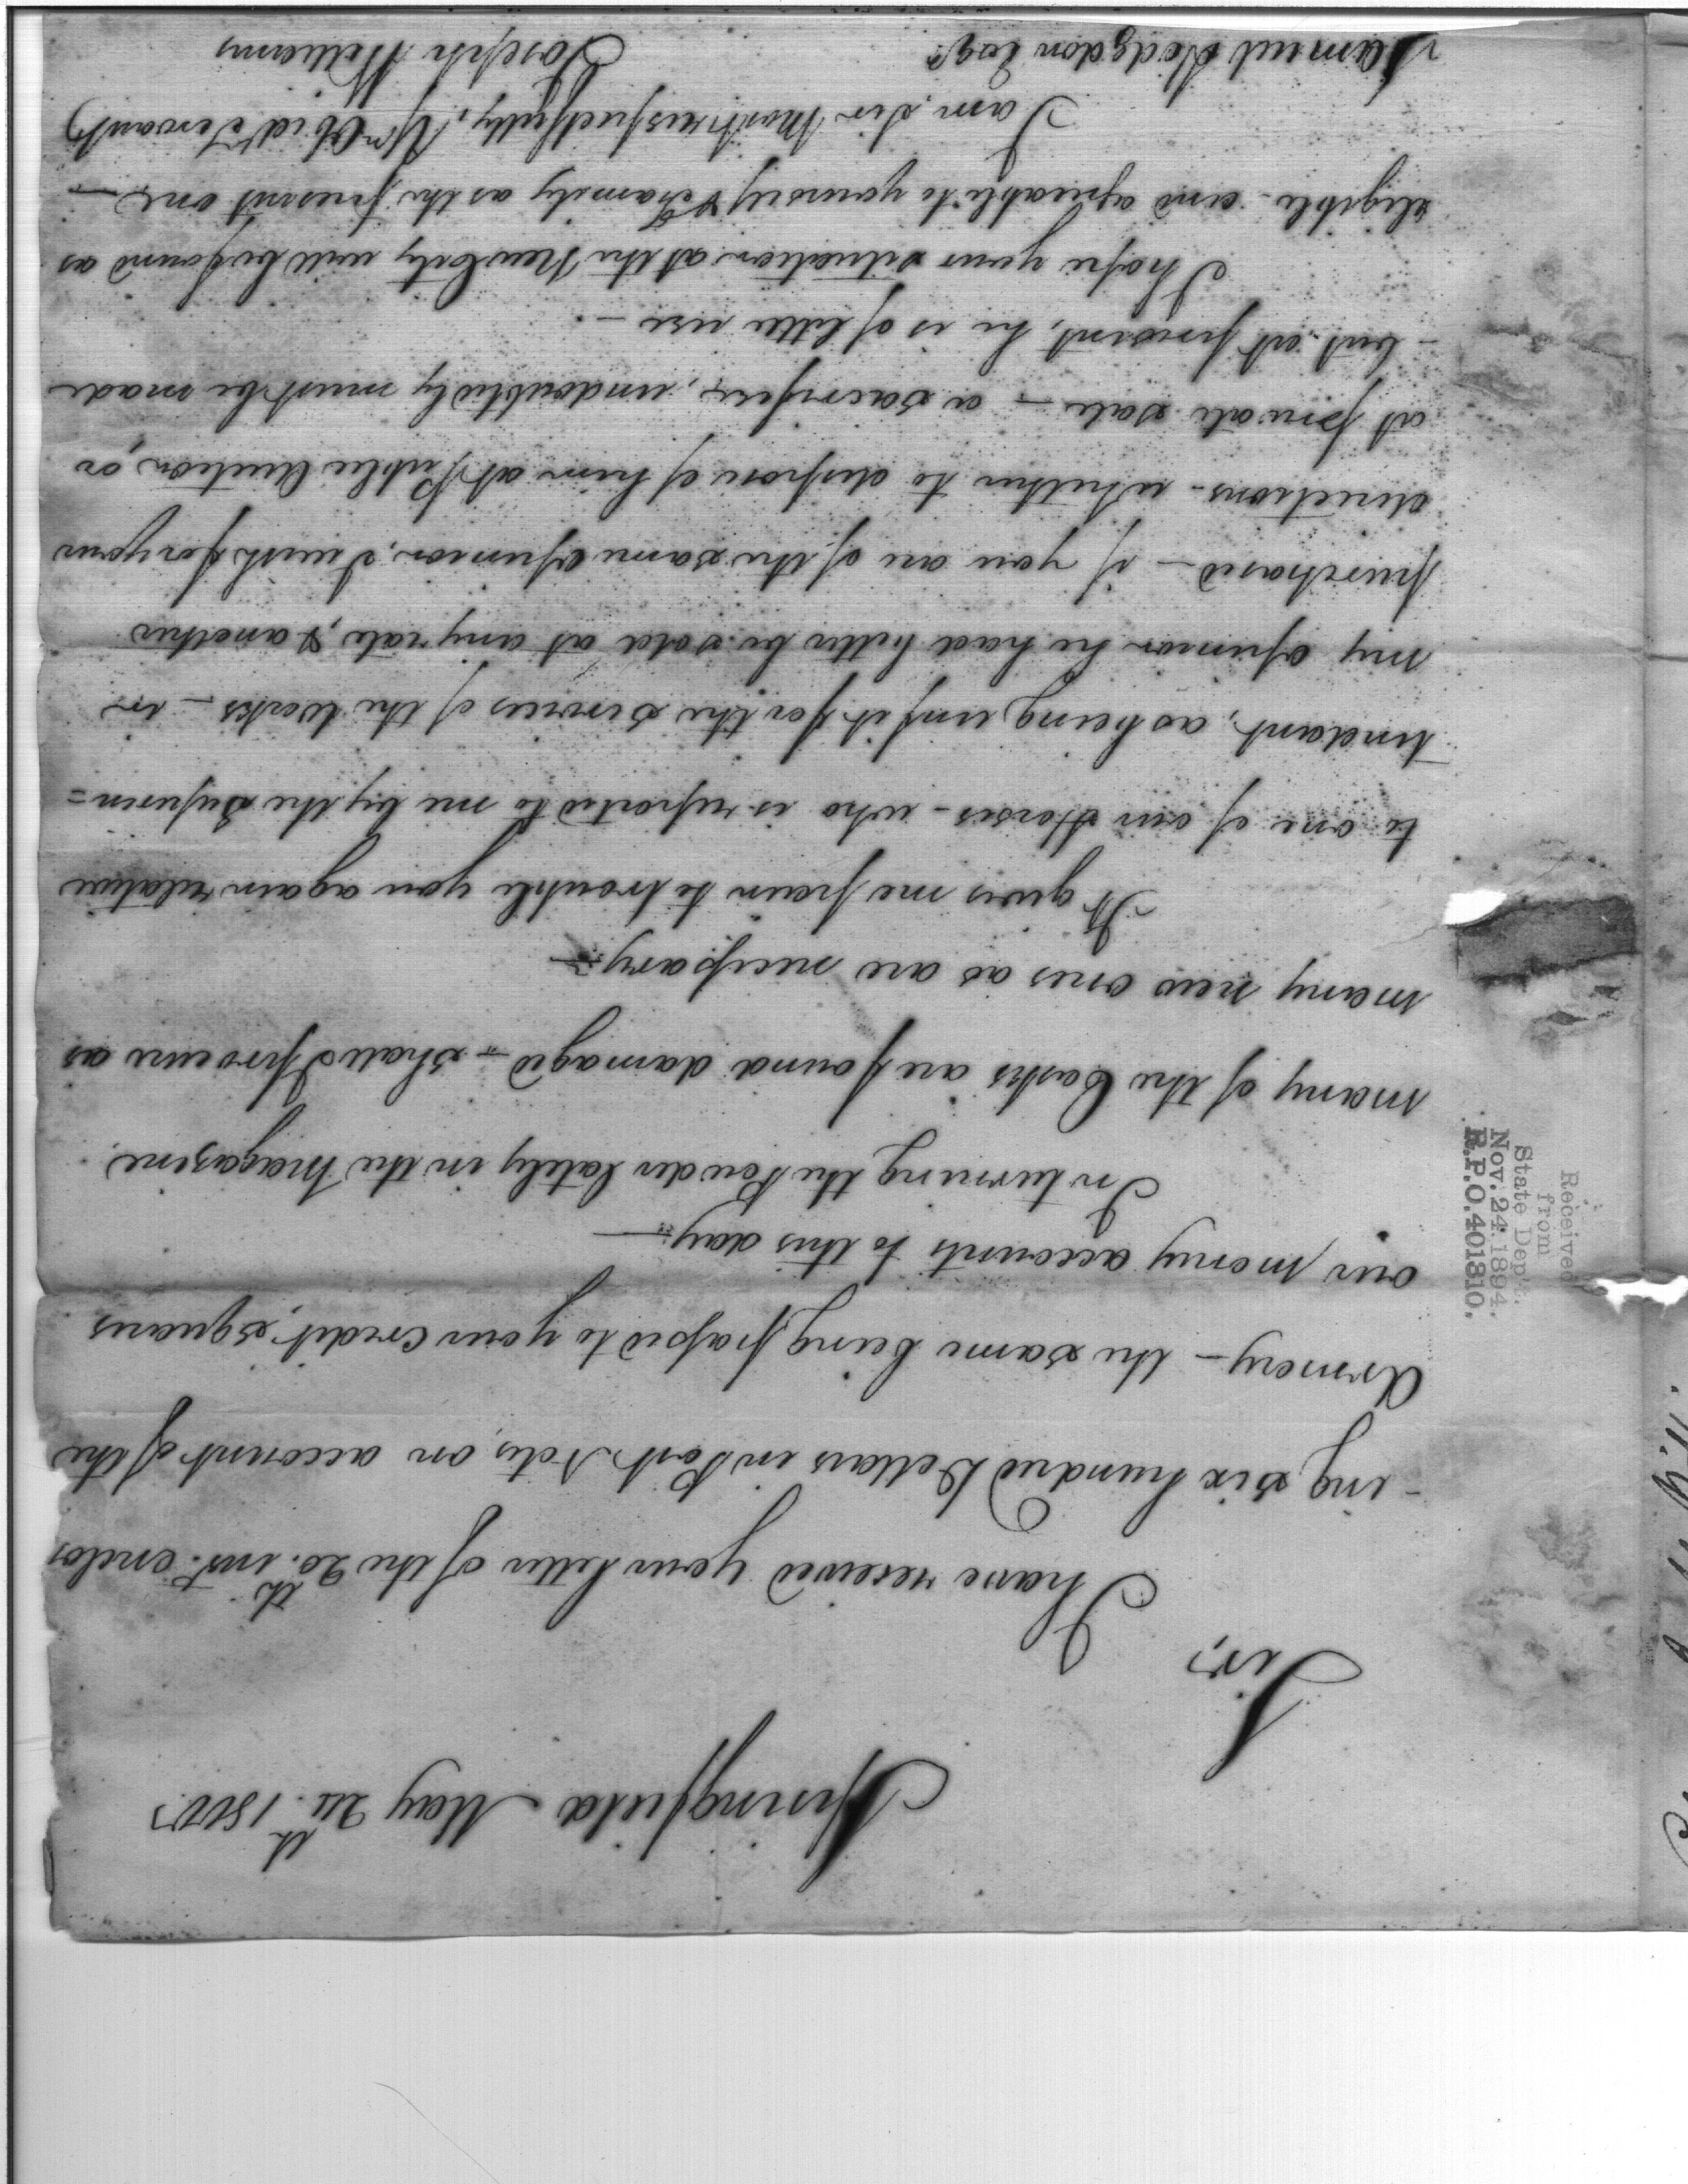 Springfield May 24th. 1800.
Sir,
I have received your letter of the 20th. inst. enclos
-ing six hundred Dollars in Post Notes, on account of the
Armory - the same being passed to your credit, squares
our money accounts to this day -
In turning the Powder lately in the Magazine
many of the Casks are found damaged - shall I procure as
many new ones as are necessary -
It gives me pain to trouble you again relative
to one of our Horses - who is reported to me by the Superin=
tendant, as being unfit for the services of the Works - in
my opinion he had better be sold at any rate, & another
purchased - if you are of the same opinion, I wish for your
directions - whether to dispose of him at Public Auction, or
at private sale - a sacrifice, undoubtedly must be made
- but at present, he is of little use -
I hope your situation at the New City will be found as
eligible - and agreeable to yourself & Family as the present one -
I am, Sir Most respectfully, Yr. Obed Servant
Joseph Williams
Samuel Hodgdon Esqr.
Received
from
State Dep't.
Nov. 24. 1894.
R.P.O. 401310.